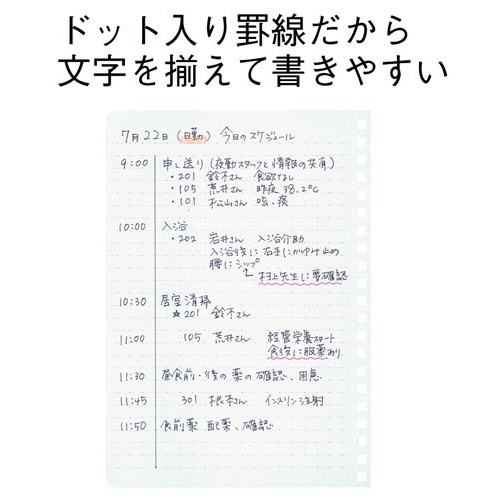 ドット入り罫線だから
文字を揃えて書きやすい
7月22日（日勤） 今日のスケジュール
9:00 申し送り（夜勤スタッフと情報の共有）
・201 鈴木さん 食欲なし
・105 荒井さん 昨夜38.2℃
・101 松山さん 咳・痰
10:00 入浴
・202 岩井さん 入浴介助
入浴後に右手にかゆみ止め
腰にシップ
村上先生に要確認
10:30 居室清掃
☆201 鈴木さん
11:00 105 荒井さん 経管栄養スタート
食後に服薬あり
11:30 昼食前・後の薬の確認、用意
11:45 301 根本さん インスリン注射
11:50 食前薬 配薬、確認